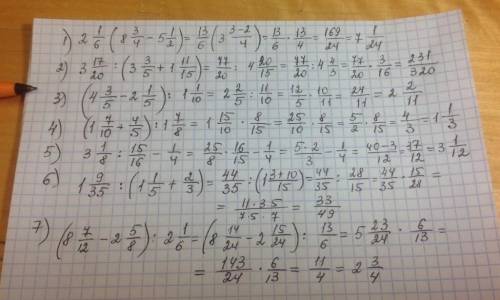 1) 2 1/6 · (8 3/4 − 5 1/2) = 13/6 · (3 (3−2)/4) = 13/6 · 13/4 = 169/24 = 7 1/24
2) 3 17/20 : (3 3/5 + 1 11/15) = 77/20 : 4 20/15 = 77/20 : 4 4/3 = 77/20 · 3/16 = 231/320
3) (4 3/5 − 2 1/5) : 1 1/10 = 2 2/5 : 11/10 = 12/5 · 10/11 = 24/11 = 2 2/11
4) (1 7/10 + 4/5) : 1 7/8 = 1 15/10 · 8/15 = 25/10 · 8/15 = 5/2 · 8/15 = 4/3 = 1 1/3
5) 3 1/8 : 15/16 − 1/4 = 25/8 · 16/15 − 1/4 = 5·2/3 − 1/4 = (40−3)/12 = 37/12 = 3 1/12
6) 1 9/35 : (1 1/5 + 2/3) = 44/35 : (1 (3+10)/15) = 44/35 : 28/15 = 44/35 · 15/28 =
= 11·3·5/7·5·7 = 33/49
7) (8 7/12 − 2 5/8) : 2 1/6 = (8 14/24 − 2 15/24) : 13/6 = 5 23/24 · 6/13 =
= 143/24 · 6/13 = 11/4 = 2 3/4